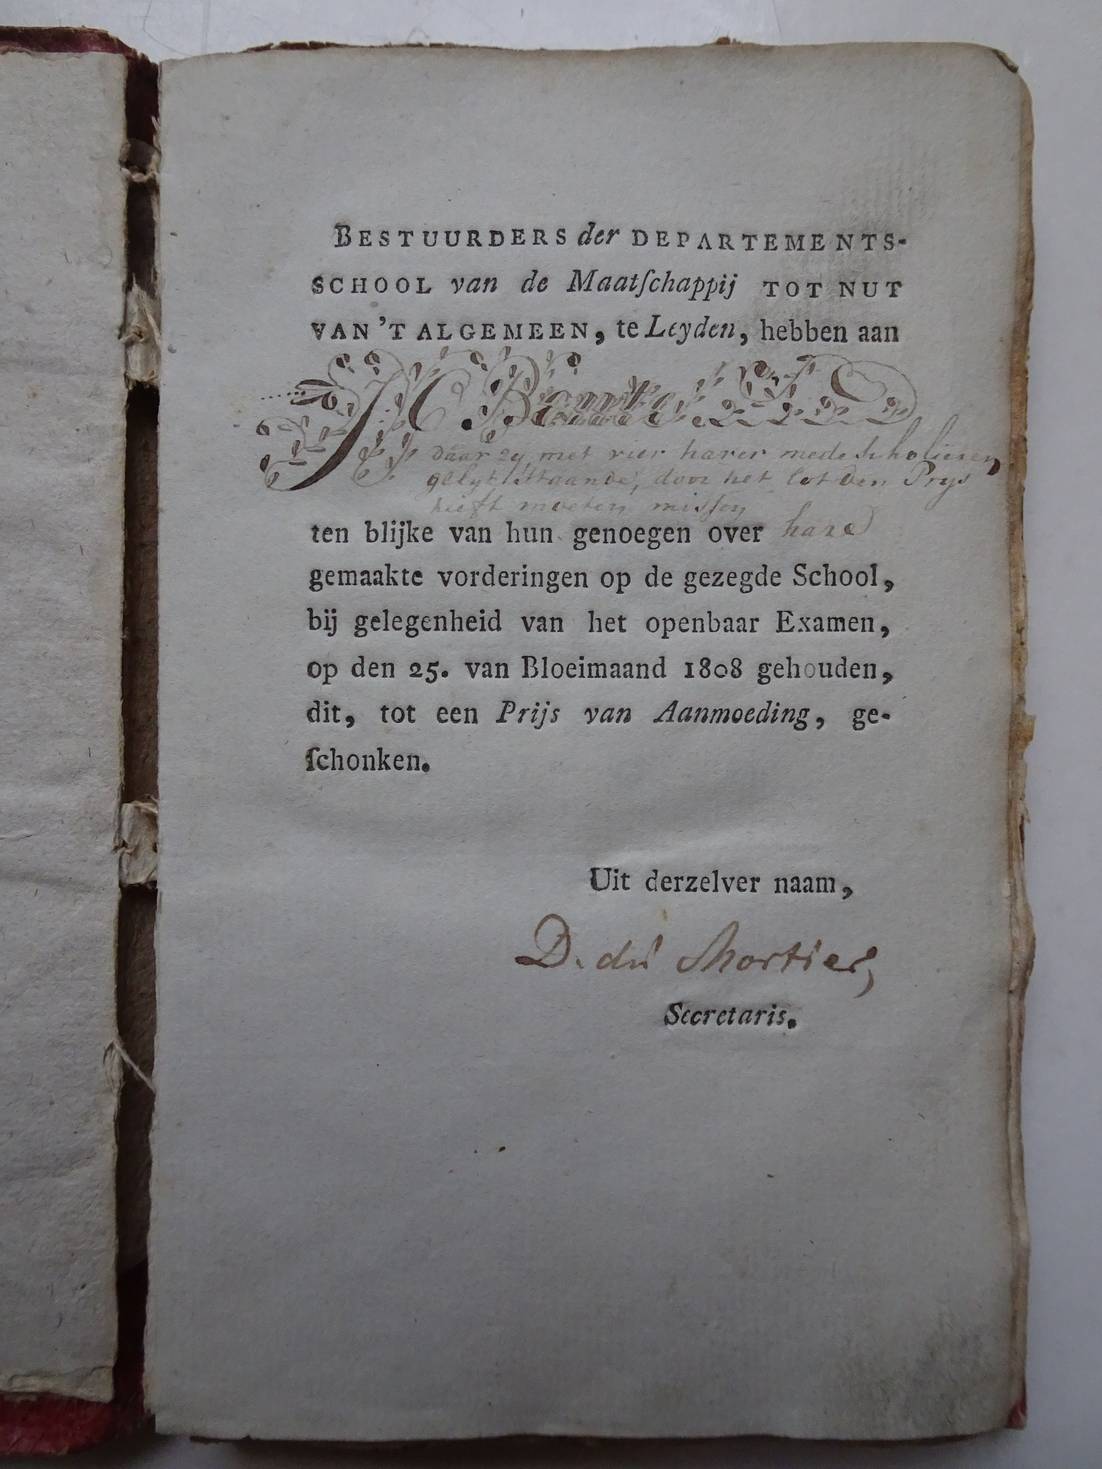 BESTUURDERS der DEPARTEMENTS-
SCHOOL van de Maatſchappij TOT NUT
VAN 'T ALGEMEEN, te Leyden, hebben aan
J C
daar zy met vier harer mede scholieren
gelyk staande, door het lot den Prys
heeft moeten missen
ten blijke van hun genoegen over hare
gemaakte vorderingen op de gezegde School,
bij gelegenheid van het openbaar Examen,
op den 25. van Bloeimaand 1808 gehouden,
dit, tot een Prijs van Aanmoeding, ge-
ſchonken.
Uit derzelver naam,
D. du Mortier,
Secretaris.